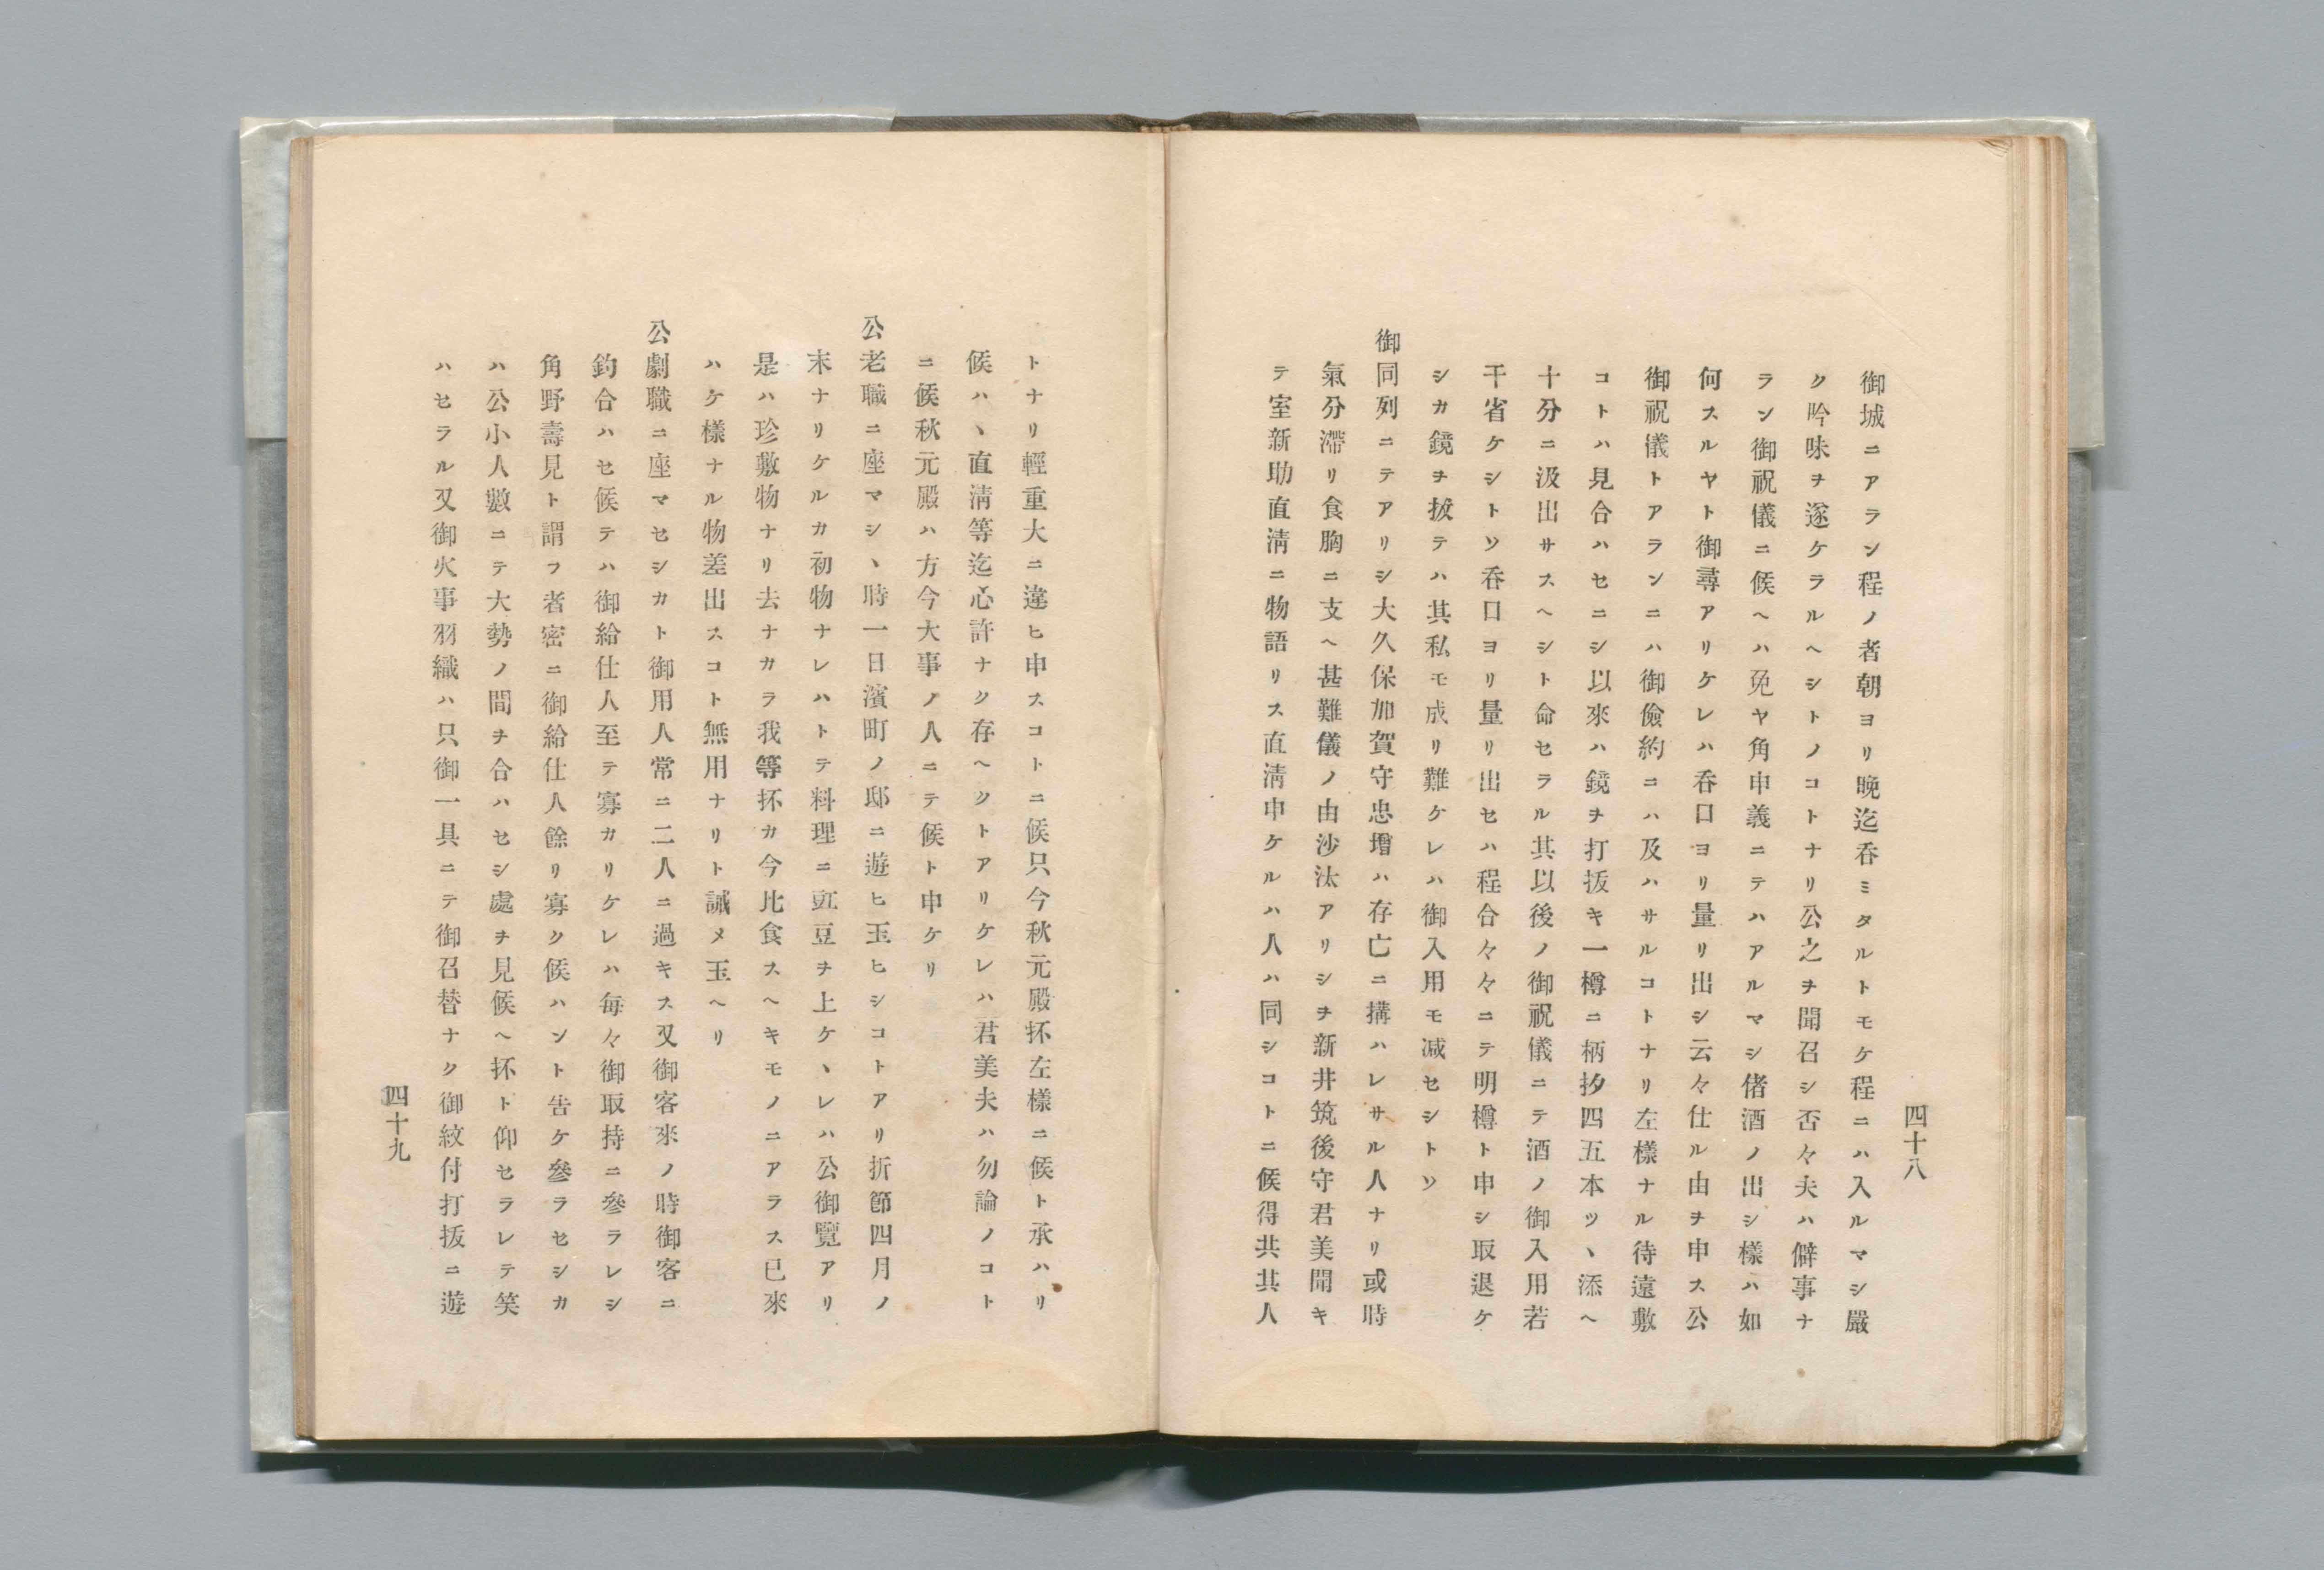 四十八
御城ニアラン程ノ者朝ヨリ晩迄呑ミタルトモケ程ニハ入ルマシ嚴
ク吟味ヲ遂ケラルヘシトノコトナリ公之ヲ聞召シ否々夫ハ僻事ナ
ラン御祝儀ニ候ヘハ免ヤ角申義ニテハアルマシ偖酒ノ出シ樣ハ如
何スルヤト御尋アリケレハ呑口ヨリ量リ出シ云々仕ル由ヲ申ス公
御祝儀トアランニハ御儉約ニハ及ハサルコトナリ左樣ナル待遠敷
コトハ見合ハセニシ以來ハ鏡ヲ打抜キ一樽ニ柄抄四五本ツヽ添ヘ
十分ニ汲出サスヘシト命セラル其以後ノ御祝儀ニテ酒ノ御入用若
干省ケシトソ呑口ヨリ量リ出セハ程合々々ニテ明樽ト申シ取退ケ
シカ鏡ヲ拔テハ其私モ成リ難ケレハ御入用モ减セシトソ
御同列ニテアリシ大久保加賀守忠增ハ存亡ニ搆ハレサル人ナリ或時
氣分滯リ食胸ニ支ヘ甚難儀ノ由沙汰アリシヲ新井筑後守君美聞キ
テ室新助直淸ニ物語リス直淸申ケルハ人ハ同シコトニ候得共其人
トナリ輕重大ニ違ヒ申スコトニ候只今秋元殿抔左樣ニ候ト承ハリ
候ハヽ直淸等迄心許ナク存ヘクトアリケレハ君美夫ハ勿論ノコト
ニ候秋元殿ハ方今大事ノ人ニテ候ト申ケリ
公老職ニ座マシヽ時一日濱町ノ邸ニ遊ヒ玉ヒシコトアリ折節四月ノ
末ナリケルカ初物ナレハトテ料理ニ豇豆ヲ上ケヽレハ公御覽アリ
是ハ珍敷物ナリ去ナカラ我等抔カ今比食スヘキモノニアラス已來
ハケ樣ナル物差出スコト無用ナリト誡メ玉ヘリ
公劇職ニ座マセシカト御用人常ニ二人ニ過キス又御客來ノ時御客ニ
釣合ハセ候テハ御給仕人至テ寡カリケレハ毎々御取持ニ參ラレシ
角野壽見ト謂フ者密ニ御給仕人餘リ寡ク候ハント告ケ參ラセシカ
ハ公小人數ニテ大勢ノ間ヲ合ハセシ處ヲ見候ヘ抔ト仰セラレテ笑
ハセラル又御火事羽織ハ只御一具ニテ御召替ナク御紋付打抜ニ遊
四十九